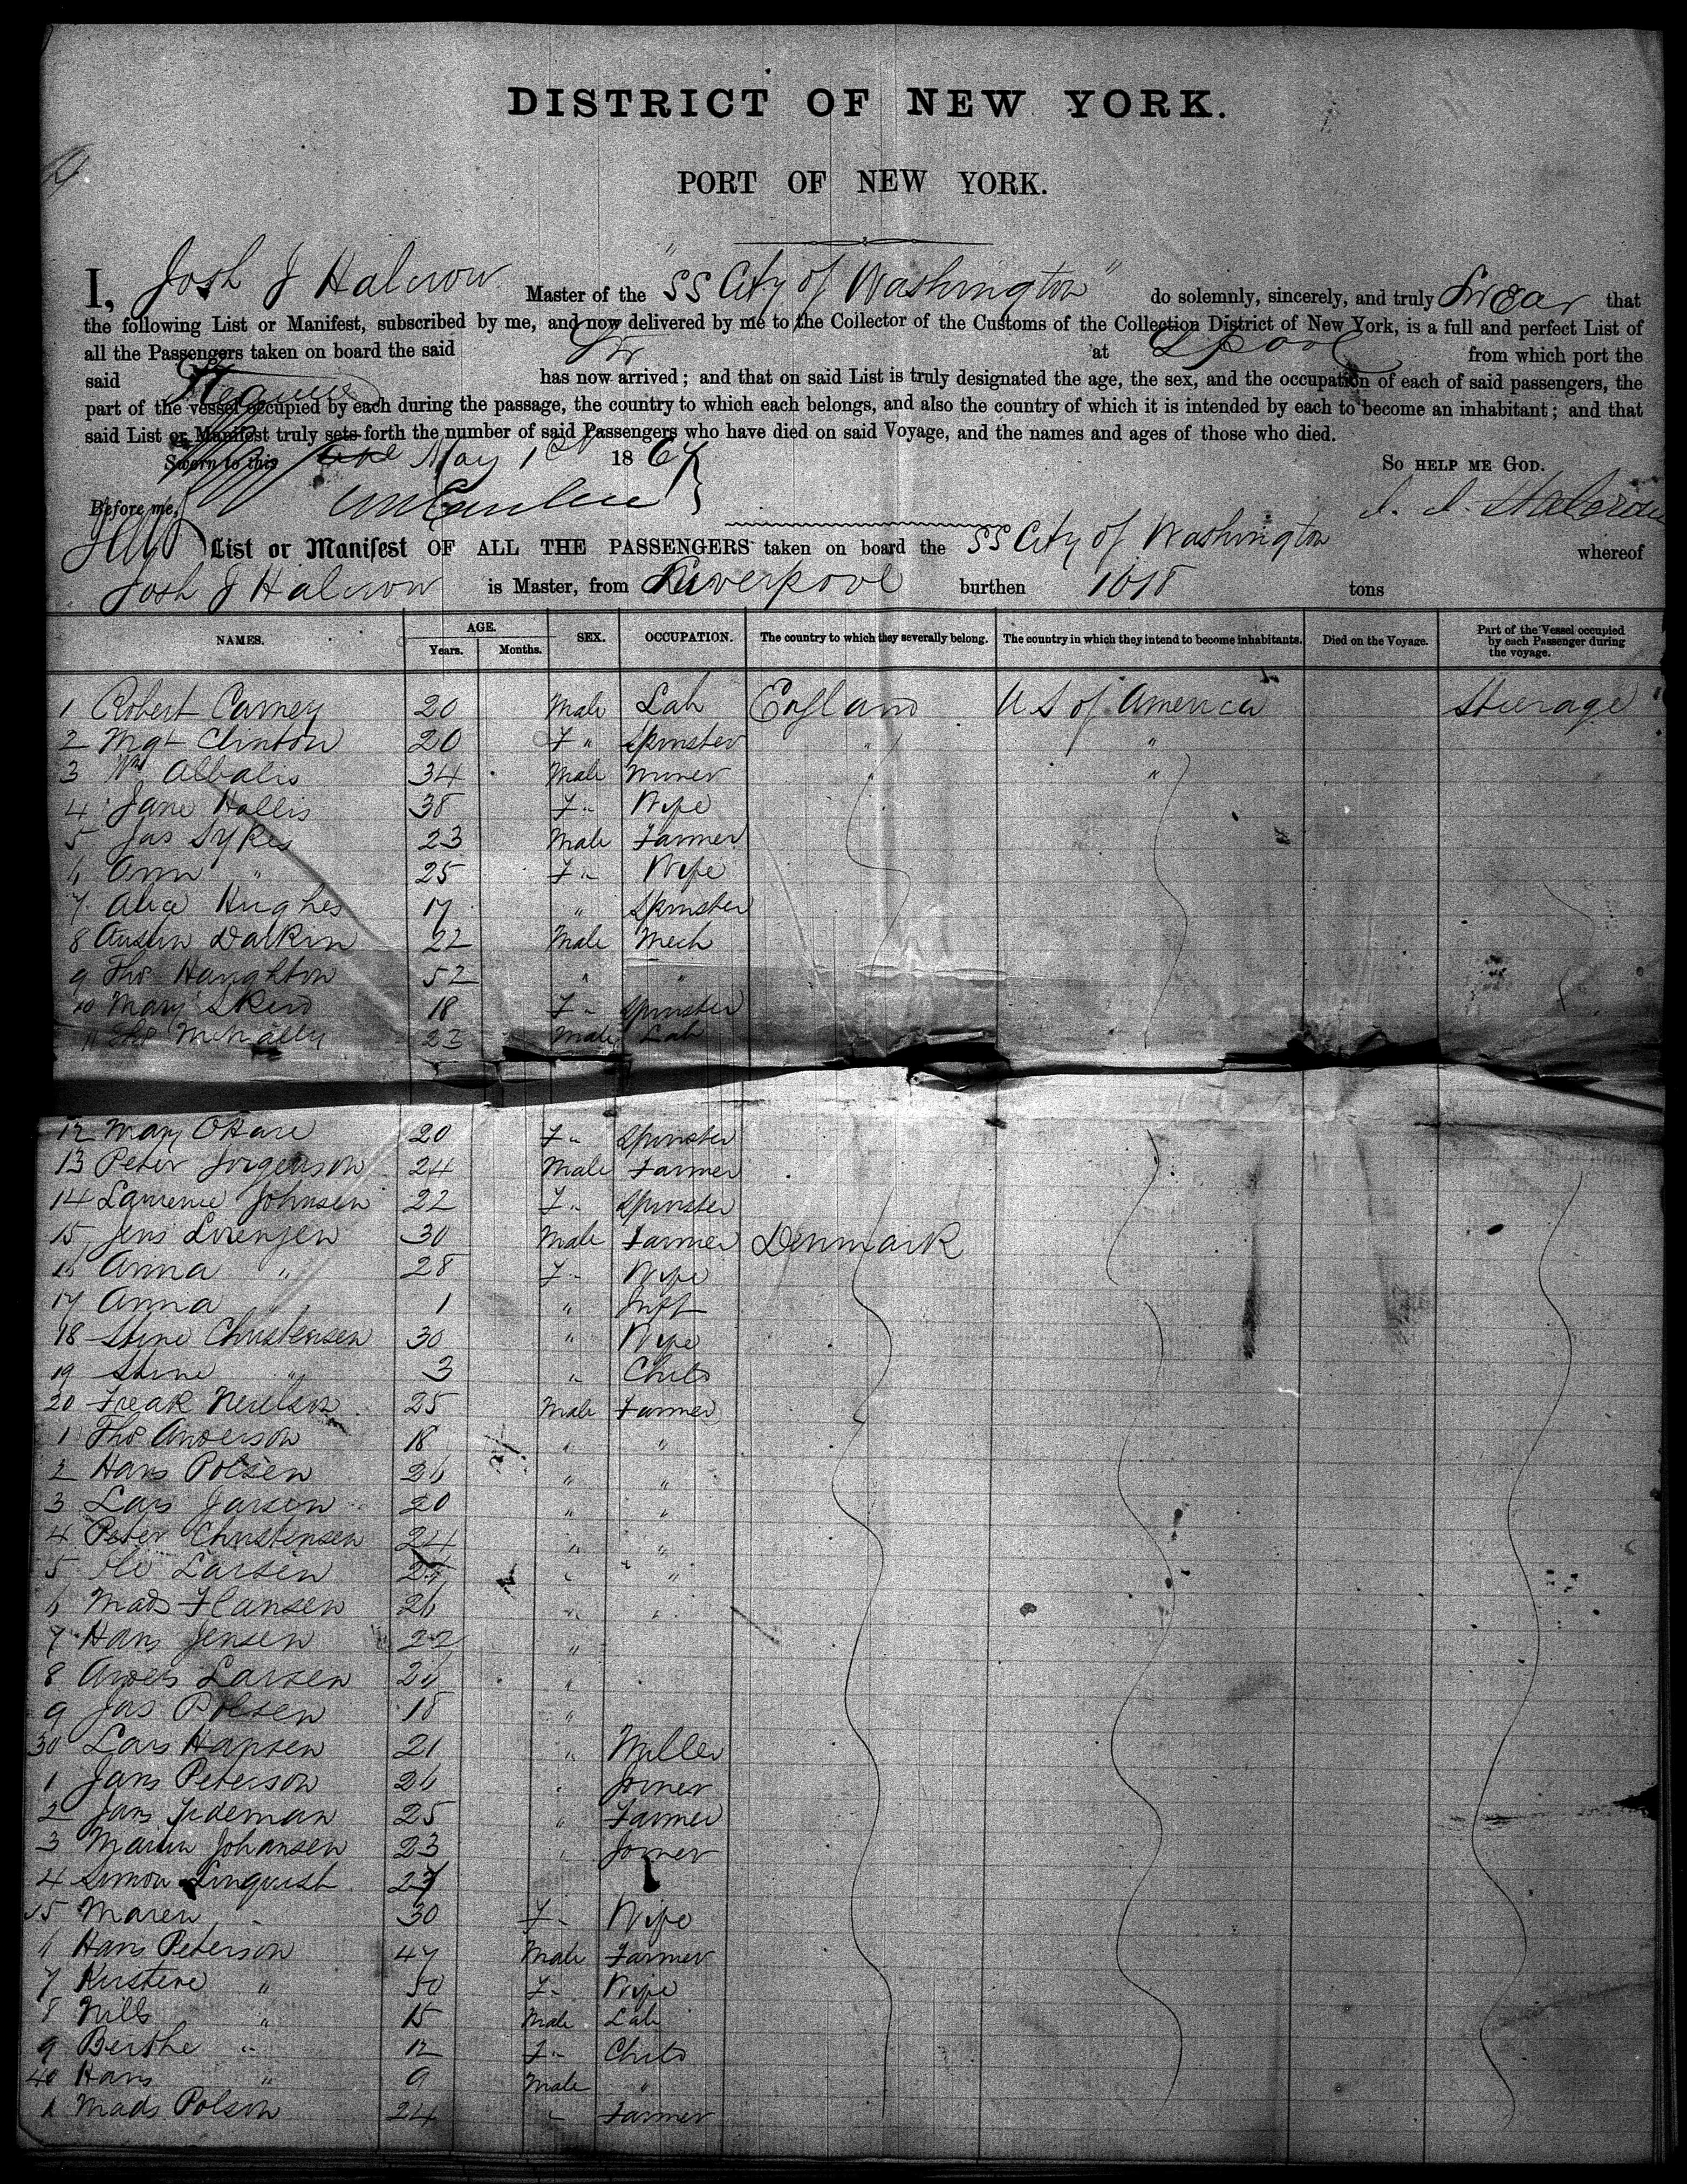 DISTRICT OF NEW YORK.
PORT OF NEW YORK.
I, Josh J Halcrow Master of the "SS City of Washington" do solemnly, sincerely, and truly Swear that
the following List or Manifest, subscribed by me, and now delivered by me to the Collector of the Customs of the Collection District of New York, is a full and perfect List of
all the Passengers taken on board the said Str at Lpool from which port the
said Steamer has now arrived; and that on said List is truly designated the age, the sex, and the occupation of each of said passengers, the
part of the vessel occupied by each during the passage, the country to which each belongs, and also the country of which it is intended by each to become an inhabitant; and that
said List or Manifest truly sets forth the number of said Passengers who have died on said Voyage, and the names and ages of those who died.
Sworn to this May 1st 1867 SO HELP ME GOD.
Before me, J. J. Halcrow
List or Manifest OF ALL THE PASSENGERS taken on board the SS City of Washington whereof
Josh J Halcrow is Master, from Liverpool burthen 1618 tons
NAMES. AGE. Years. Months. SEX. OCCUPATION. The country to which they severally belong. The country in which they intend to become inhabitants. Died on the Voyage. Part of the Vessel occupied by each Passenger during the voyage.
1 Robert Carney 20 Male Lab England U S of America Steerage
2 Mgt Clinton 20 F " Spinster " "
3 Wm Albalis 34 Male Miner " "
4 Jane Hallis 38 F " Wife
5 Jas Sykes 23 Male Farmer
6 Ann " 25 F " Wife
7 Alice Hughes 17 " Spinster
8 Austin Darkin 22 Male Mech
9 Thos Haughton 52 " "
10 Mary Skerd 18 F " Spinster
11 Thos McNally 23 Male Lab
12 Mary OHare 20 F " Spinster
13 Peter Jorgenson 24 Male Farmer
14 Laurence Johnsen 22 F " Spinster
15 Jens Lorenzen 30 Male Farmer Denmark
16 Anna " 28 F " Wife
17 Anna " 1 " Inft
18 Stine Christensen 30 " Wife
19 Stine " 3 " Child
20 Freak Neilsen 25 Male Farmer
1 Thos Anderson 18 " "
2 Hans Polsen 26 " "
3 Lars Jarsen 20 " "
4 Peter Christensen 24 " "
5 Larsen " "
6 Mads Hansen 26 " "
7 Hans Jensen 22 "
8 Anders Larsen 26 "
9 Jas Polsen 18 "
30 Lars Hansen 21 " Miller
1 Jans Peterson 26 " Joiner
2 Jans 25 " Farmer
3 Martin Johansen 23 " Joiner
4 Simon Linquist 27
35 Maren " 30 F " Wife
6 Hans Peterson 47 Male Farmer
7 Kirstene " 50 F " Wife
8 Nills " 15 Male Lab
9 Berthe " 12 F " Child
40 Hans " 9 Male "
1 Mads Polson 24 " Farmer